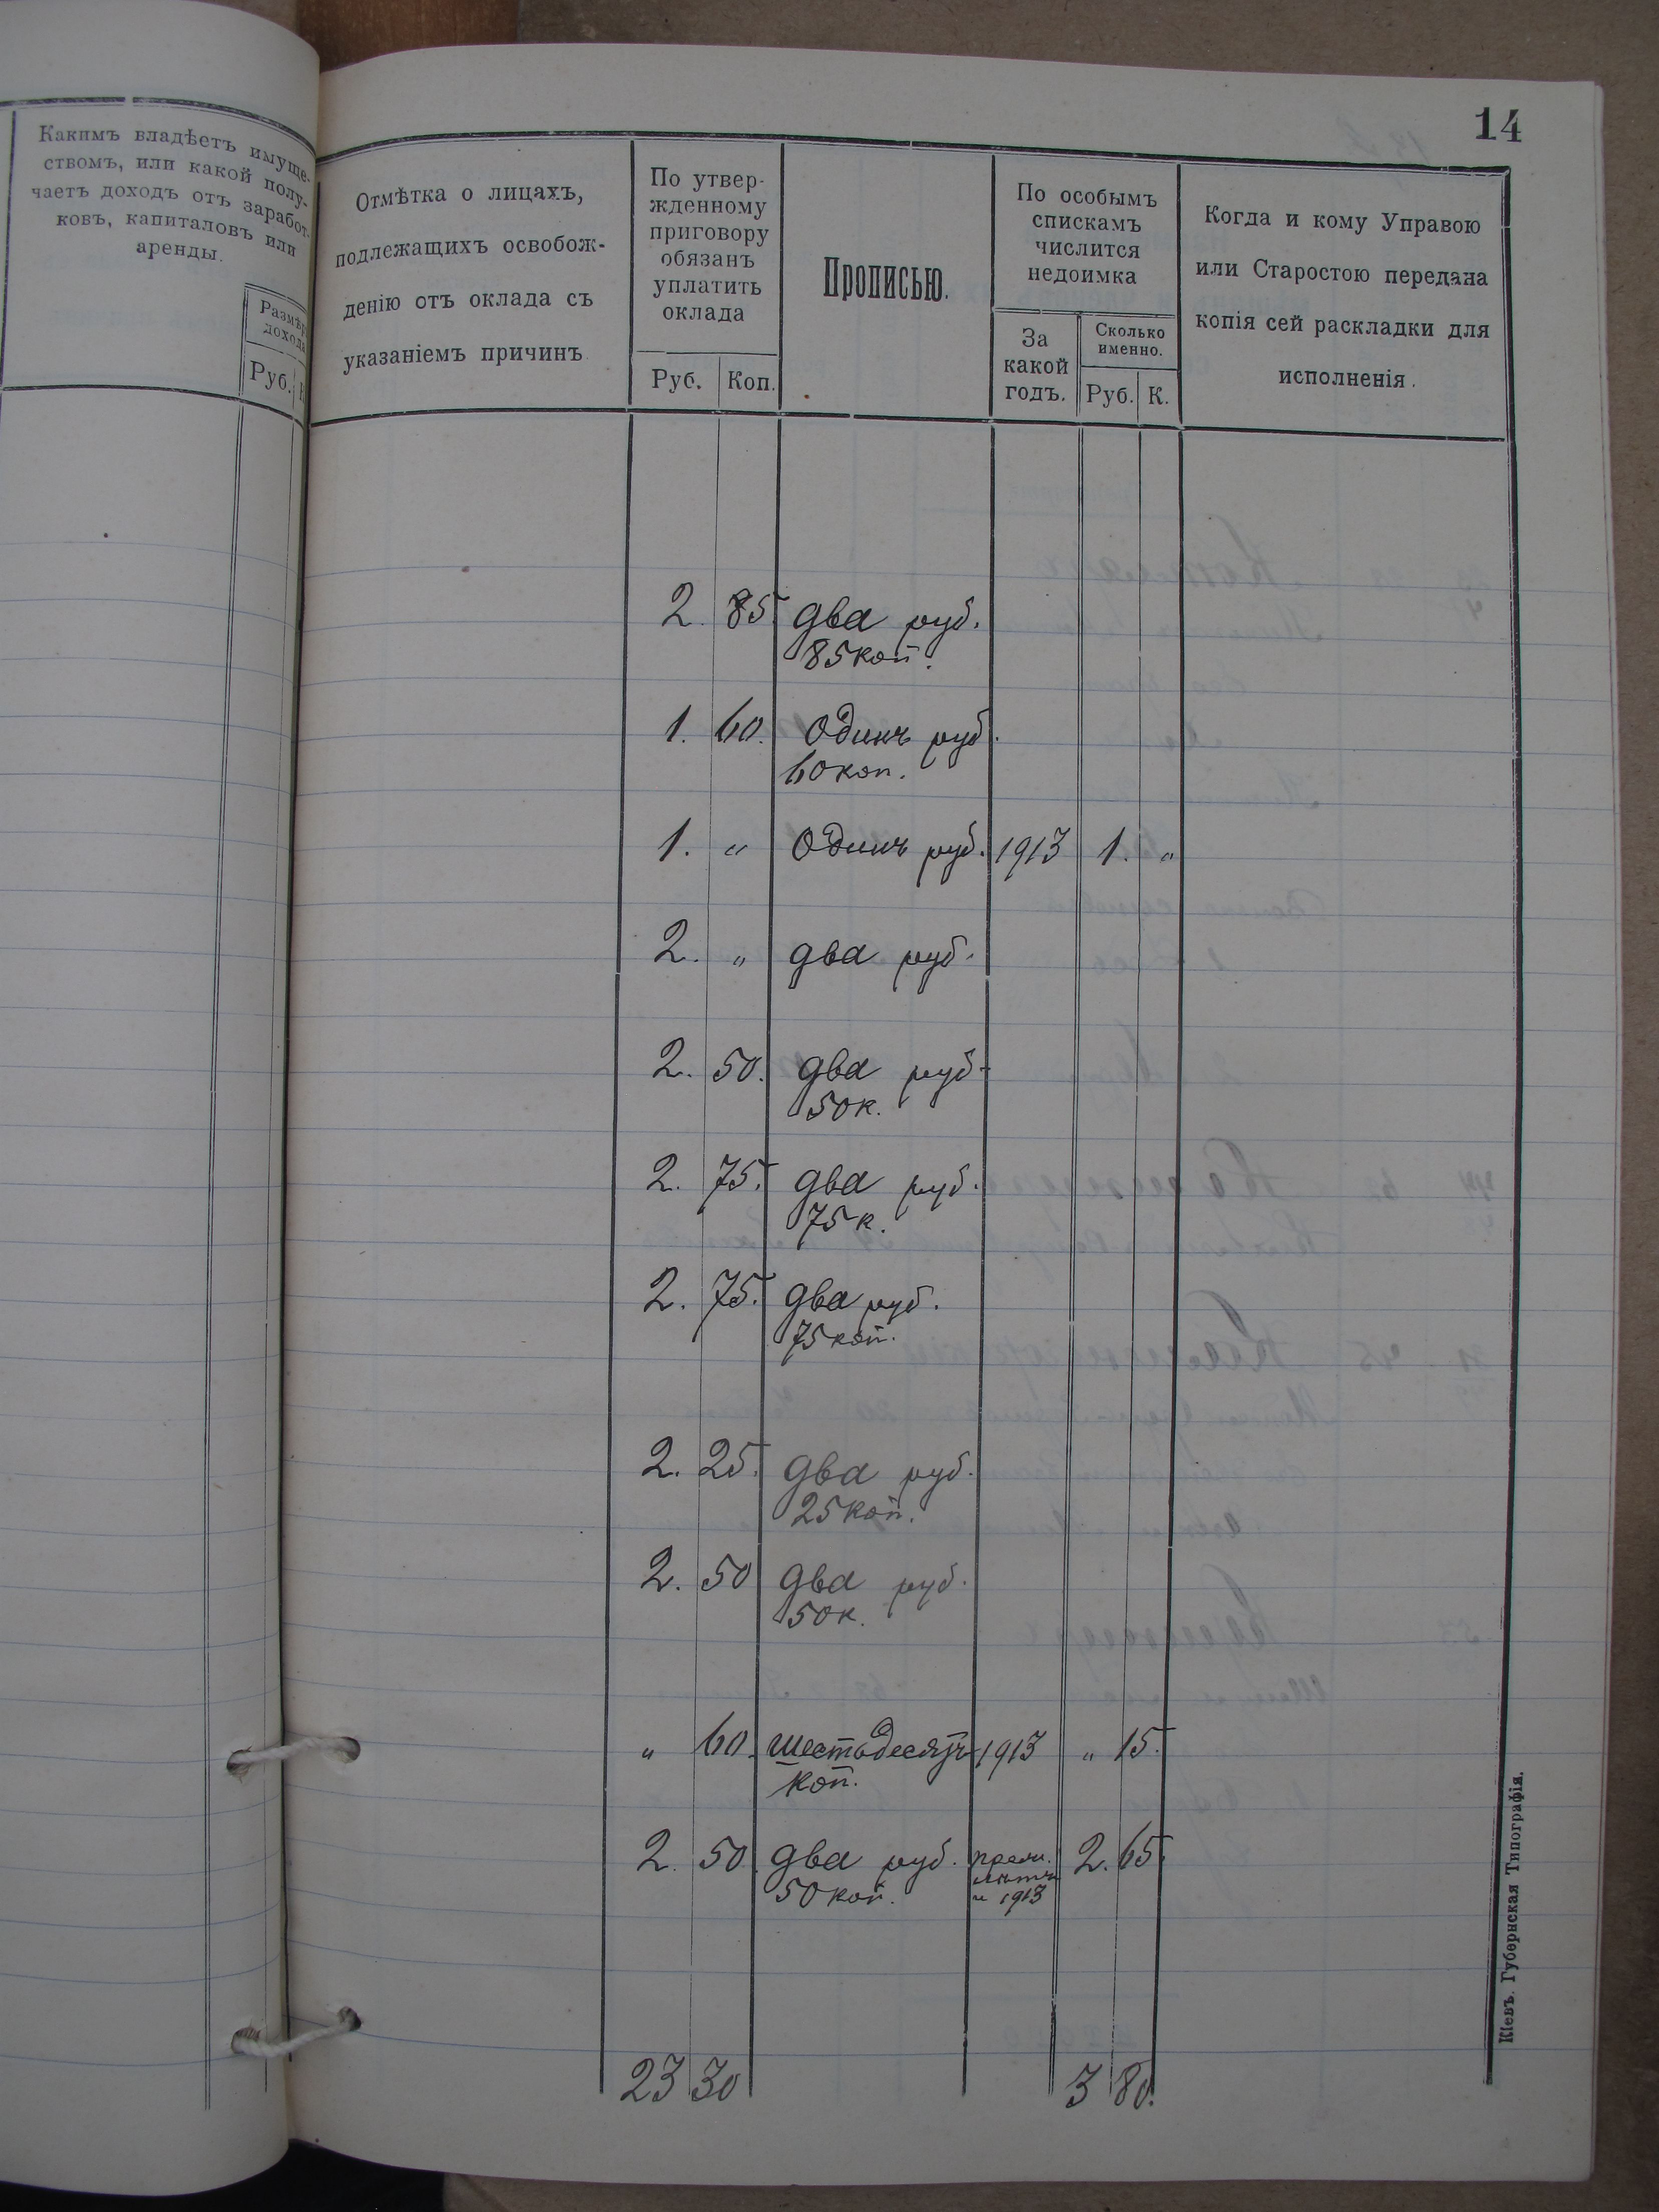 14
Какимъ владѣетъ имуще-
ствомъ, или какой полу-
чаетъ доходъ отъ заработ-
ковъ, капиталовъ или
аренды.
Размѣръ
дохода
Руб.
К.
Отмѣтка о лицахъ,
подлежащихъ освобож-
денію отъ оклада съ
указаніемъ причинъ
По утвер-
жденному
приговору
обязанъ
уплатить
оклада
Руб. Коп.
Прописью.
По особымъ
спискамъ
числится
недоимка
За
какой
годъ.
Сколько
именно.
Руб. К.
Когда и кому Управою
или Старостою передана
копія сей раскладки для
исполненія.
2. 85. два руб.
85 коп.
1. 60. Одинъ руб.
60 коп.
1. " Одинъ руб. 1913 1. "
2. " два руб.
2. 50. два руб.
50 к.
2. 75. два руб.
75 к.
2. 75. два руб.
75 коп.
2. 25. два руб.
25 коп.
2. 50 два руб.
50 к.
" 60. шестьдесятъ 1913 " 15.
коп.
2. 50. два руб. 2. 65.
50 коп. и 1913
23 30 3 80.
Кіевъ. Губернская Типографія.